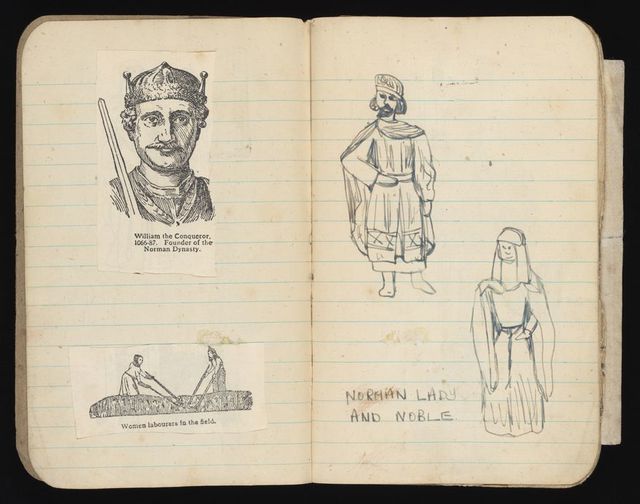 William the Conqueror,
1066-87. Founder of the
Norman Dynasty.
Women labourers in the field.
NORMAN LADY
AND NOBLE